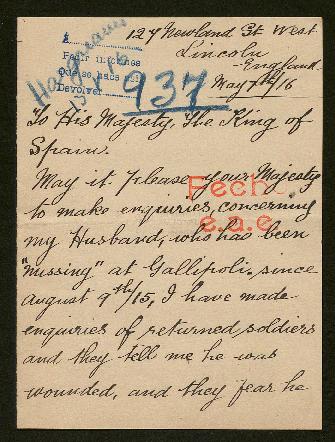 127 Newland St West
Lincoln
England
May 7th/16
937
To His Majesty, The King of
Spain.
May it please your Majesty
Fech
to make enquiries, concerning
e.a.e
my Husband, who has been
"missing" at Gallipoli, since
August 9th/15, I have made
enquiries of returned soldiers
and they tell me he was
wounded, and they fear he